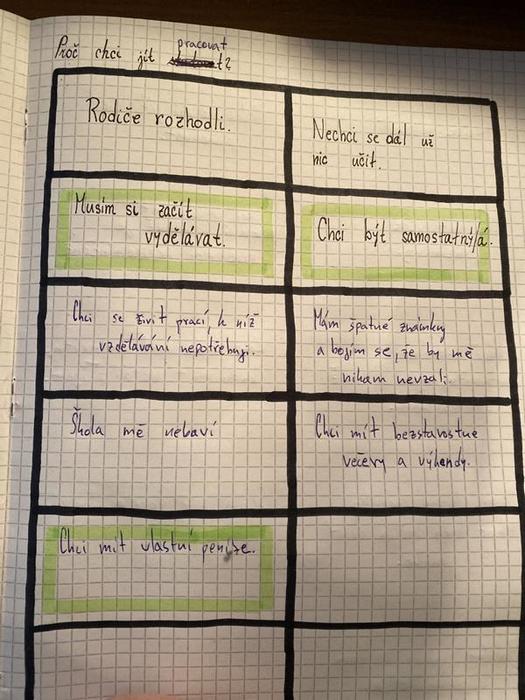 Proč chci jít pracovat?
Rodiče rozhodli.
Nechci se dál už
nic učit.
Musím si začít
vydělávat.
Chci být samostatný/á.
Chci se živit prací, k níž
vzdělávání nepotřebuji.
Mám špatné známky
a bojím se, že by mě
nikam nevzali.
Škola mě nebaví
Chci mít bezstarostne
večery a výkendy.
Chci mít vlastní peníze.